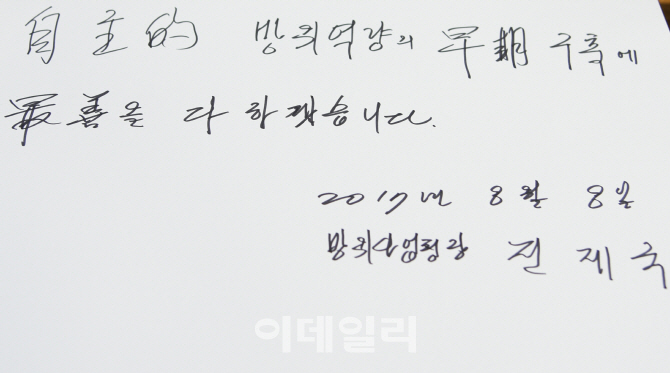 自主的 방위역량의 早期 구축에
最善을 다 하겠습니다.
2017년 8월 8일
방위사업청장 전제국
이데일리